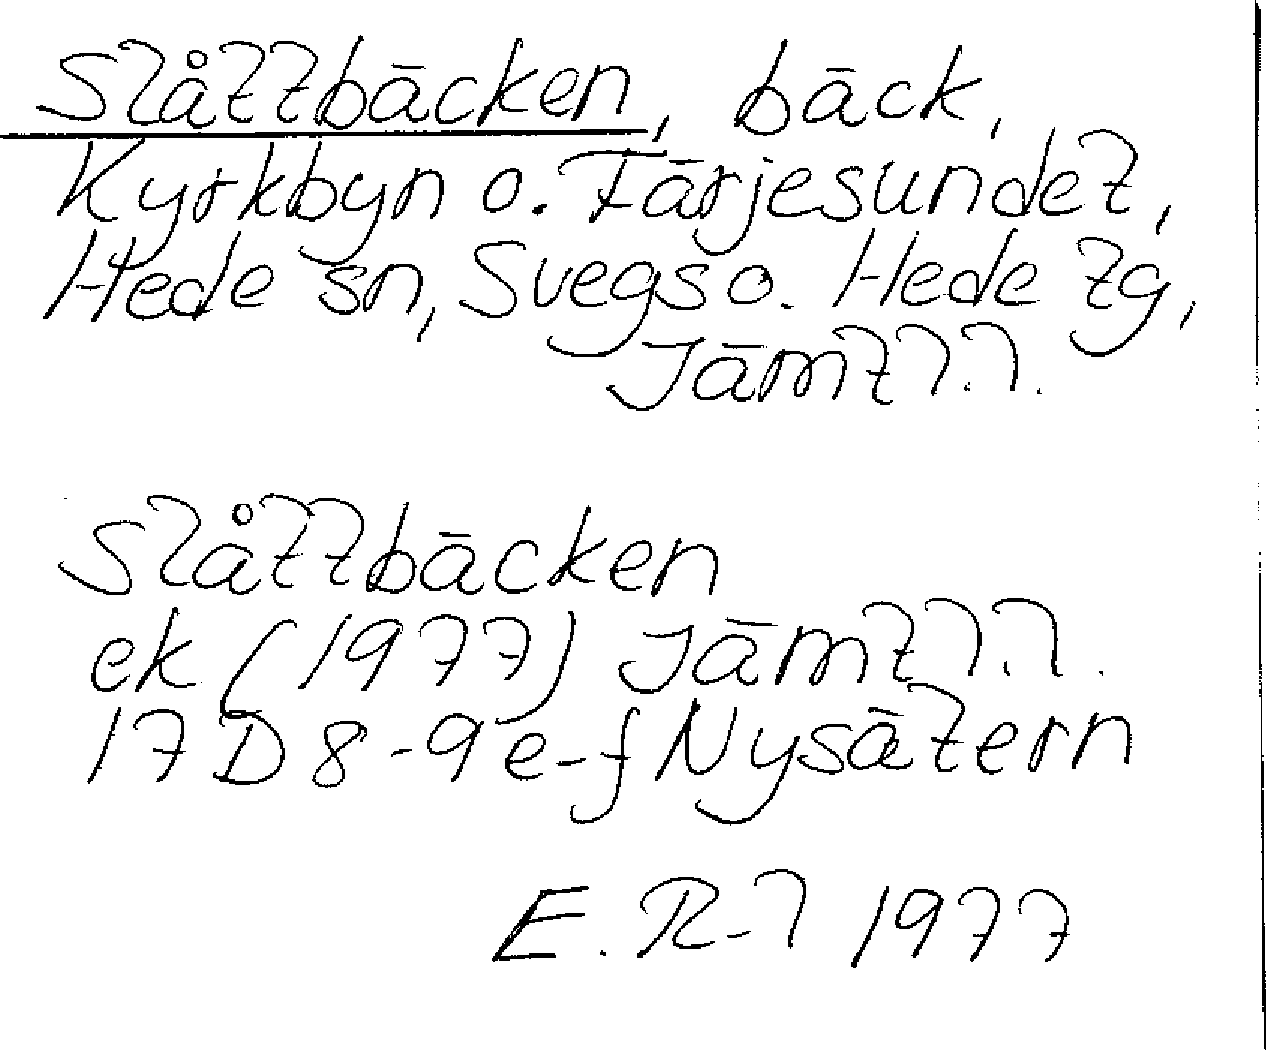 Slåttbäcken, bäck,
Kyrkbyn o. Färjesundet,
Hede sn, Svegs o. Hede tg,
Jämtl.l.
Slåttbäcken
ek (1977) Jämtl.l.
17D 8-9 e-f Nysätern
E. R-l 1977